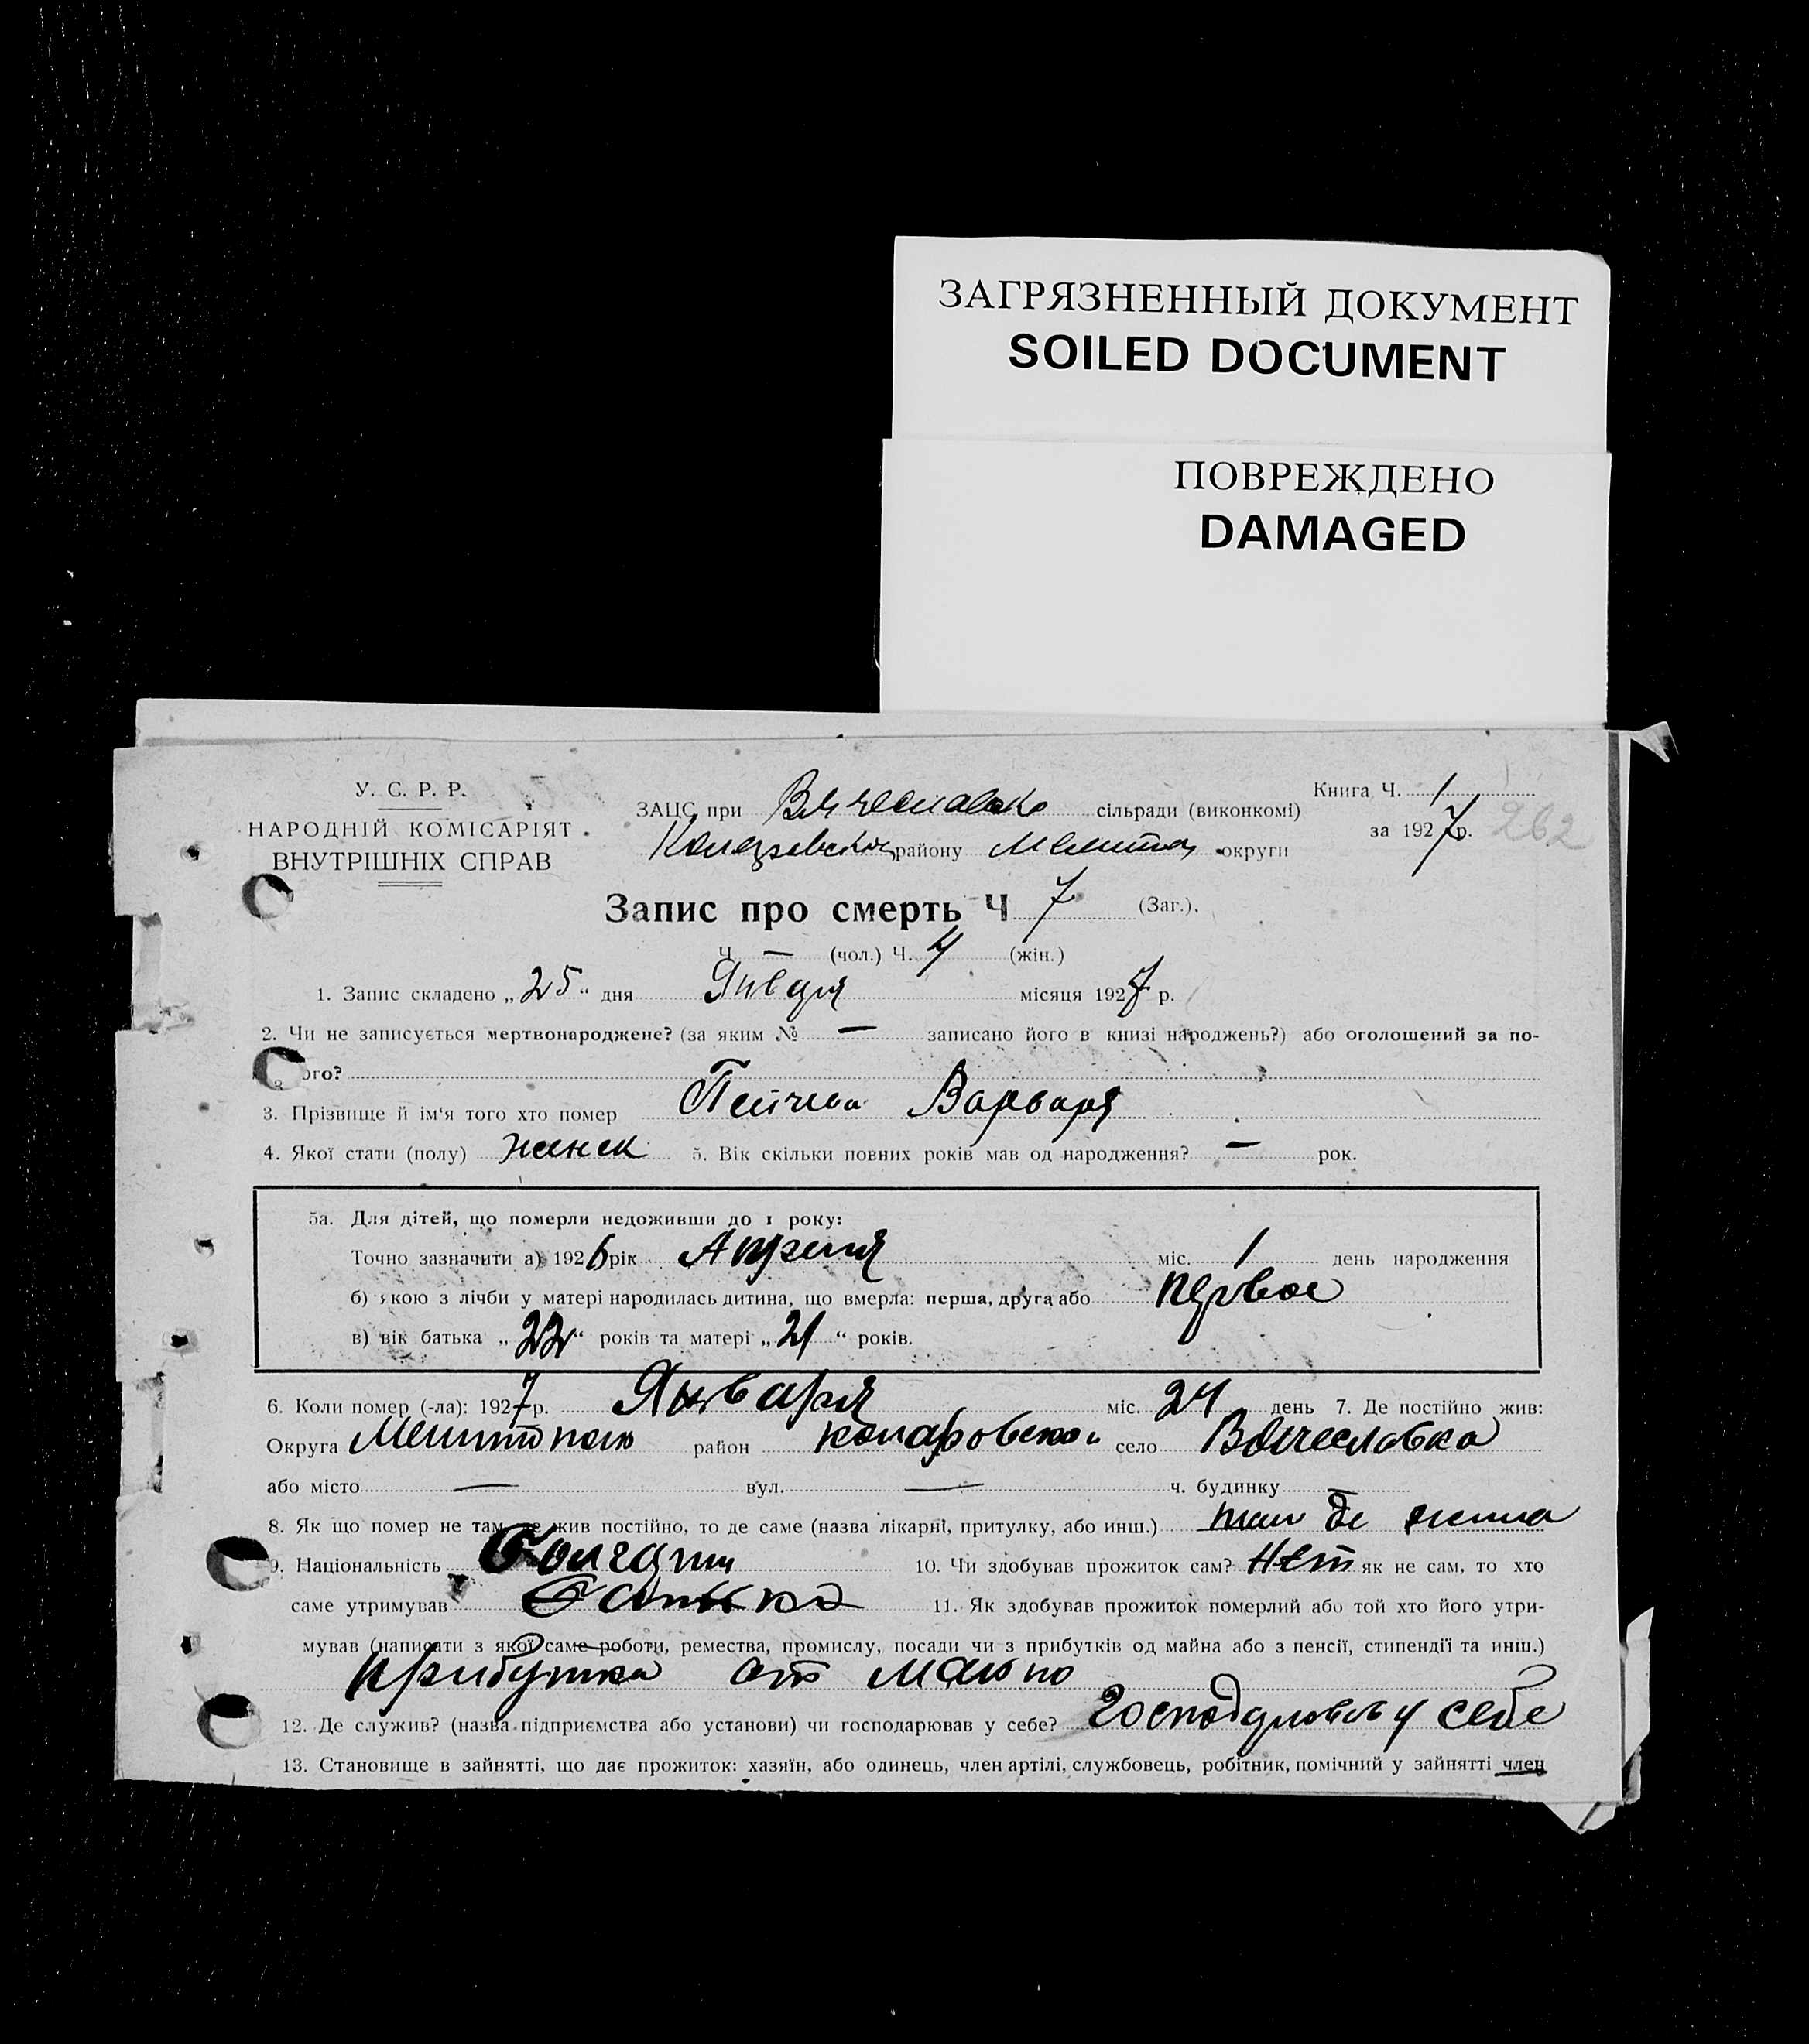 ЗАГРЯЗНЕННЫЙ ДОКУМЕНТ
SOILED DOCUMENT
ПОВРЕЖДЕНО
DAMAGED
У. С. Р. Р.
НАРОДНІЙ КОМІСАРІЯТ
ВНУТРІШНІХ СПРАВ
ЗАЦС при Вячеславско сільради (виконкомі)
району Мелитоп округи
Книга Ч. 1
за 1927 р. 262
Запис про смерть Ч 7 (Заг.).
Ч — (чол.) Ч. 4 (жін.)
1. Запис складено „25“ дня Января місяця 1927 р.
2. Чи не записується мертвонароджене? (за яким № — записано його в книзі народжень?) або оголошений за по-
ого?
3. Прізвище й ім'я того хто помер Пейчева Варвара
4. Якої стати (полу) женск 5. Вік скільки повних років мав од народження? — рок.
5а. Для дітей, що померли недоживши до 1 року:
Точно зазначити а) 1926 рік Апреля міс. 1 день народження
б) якою з лічби у матері народилась дитина, що вмерла: перша, друга або первое
в) вік батька „22“ років та матері „21“ років.
6. Коли помер (-ла): 1927 р. Января міс. 24 день 7. Де постійно жив:
Округа район село Вячеславка
або місто — вул. — ч. будинку —
8. Як що помер не там, де жив постійно, то де саме (назва лікарні, притулку, або инш.) там де жила
9. Національність 10. Чи здобував прожиток сам? Нет як не сам, то хто
саме утримував батько 11. Як здобував прожиток померлий або той хто його утри-
мував (написати з якої саме роботи, ремества, промислу, посади чи з прибутків од майна або з пенсії, стипендії та инш.)
прибутка от
12. Де служив? (назва підприємства або установи) чи господарював у себе? у себе
13. Становище в зайнятті, що дає прожиток: хазяїн, або одинець, член артілі, службовець, робітник, помічний у зайнятті член